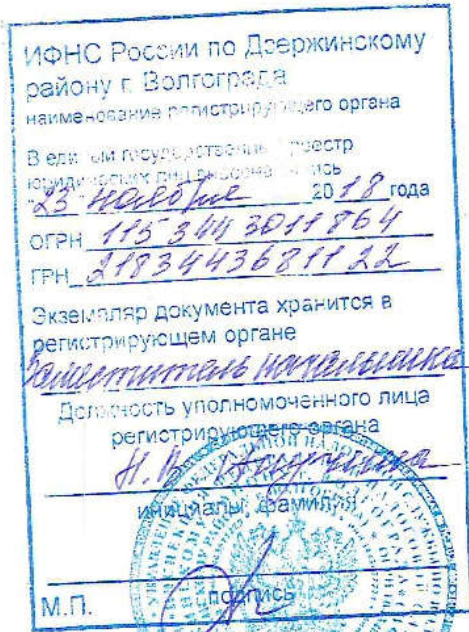 ИФНС России по Дзержинскому
району г. Волгограда
наименование регистрирующего органа
В единый государственный реестр
юридических лиц внесена запись
"23" ноября 2018 года
ОГРН 1153443011864
ГРН 2183443681122
Экземпляр документа хранится в
регистрирующем органе
Заместитель начальника
Должность уполномоченного лица
регистрирующего органа
Н.В.
инициалы, фамилия
подпись
М.П.